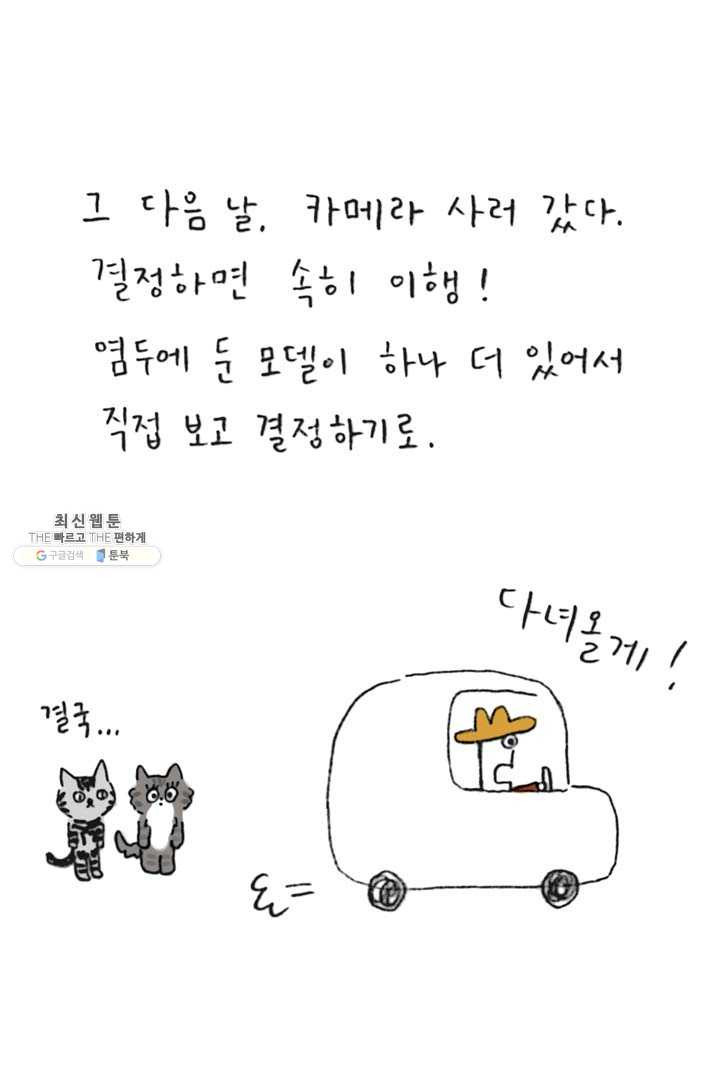 그 다음 날, 카메라 사러 갔다.
결정하면 속히 이행!
염두에 둔 모델이 하나 더 있어서
직접 보고 결정하기로.
최신웹툰
THE 빠르고 THE 편하게
구글검색 툰북
다녀올게!
결국...